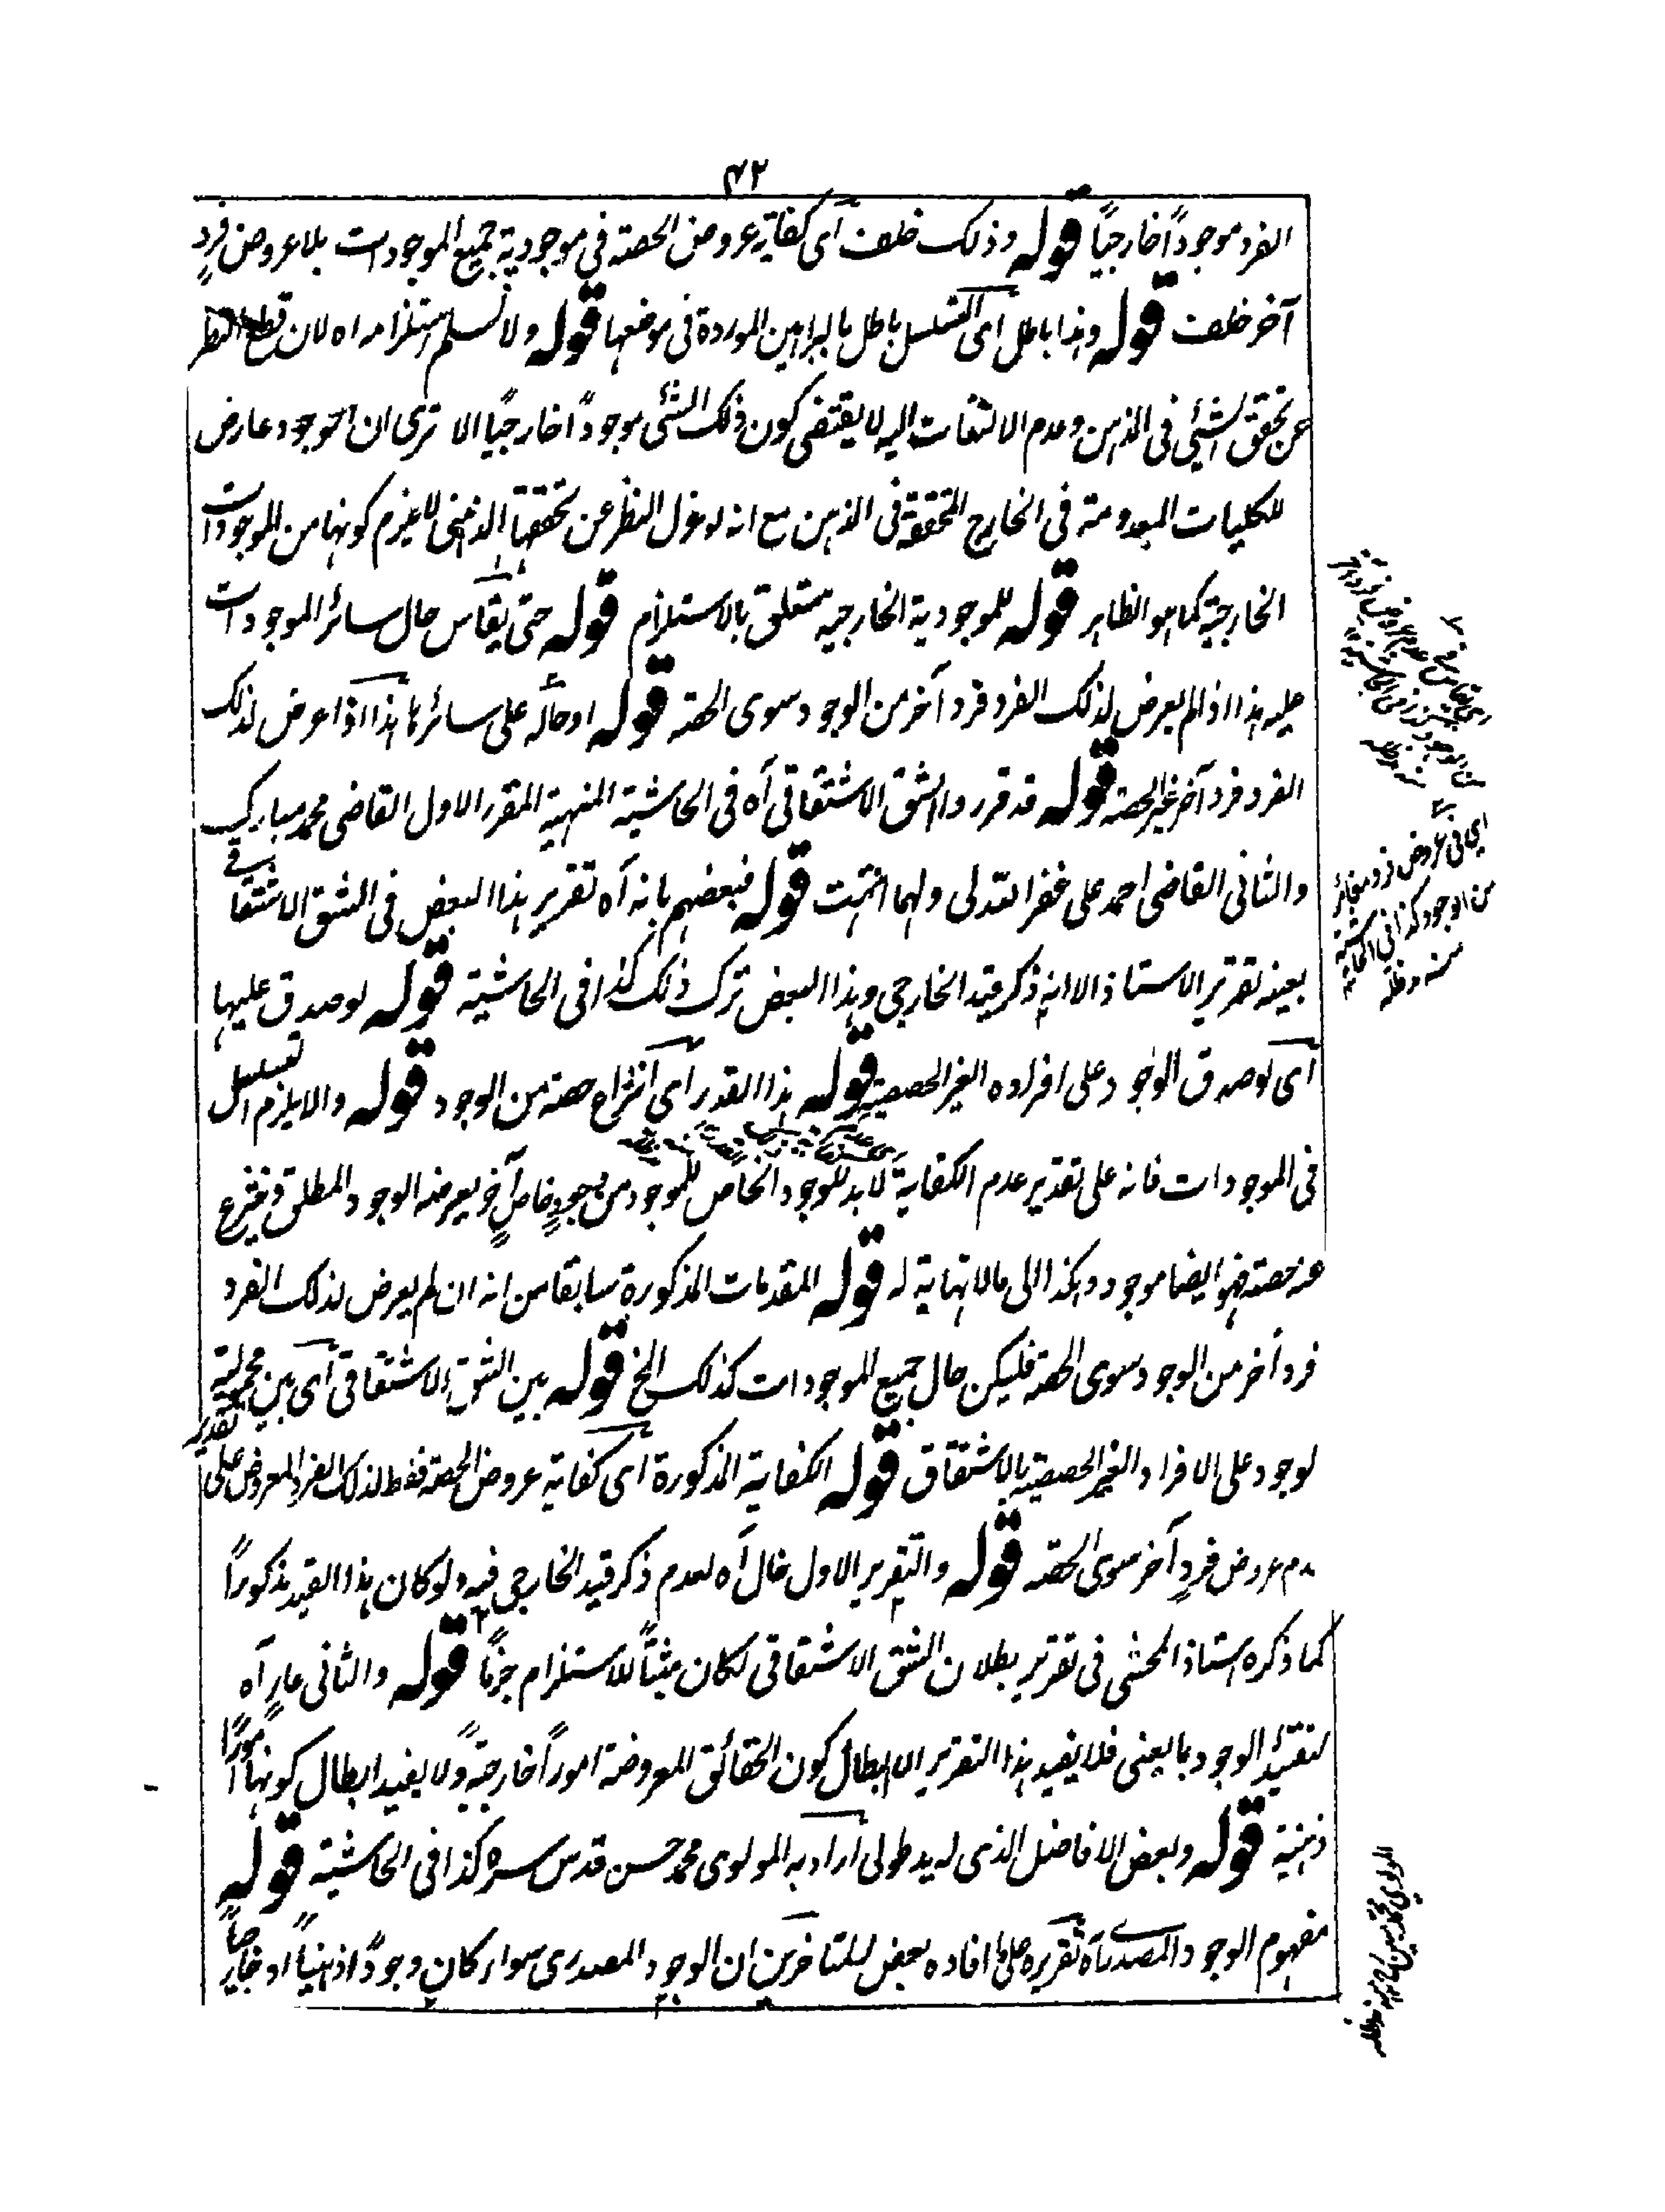 ٤٢
الفرد موجوداً خارجياً قوله وذلك خلف اى كفاية عروض الحصة فى موجودية جميع الموجودات بلا عروض فردٍ
آخر خلف قوله وهذا باطل اى التسلسل باطل بالبراهين الموردة فى موضعها قوله ولا نسلم استلزامه اه لان قطع النظر
عن تحقق الشئ فى الذهن وعدم الالتفات اليه لا يقتضى كون ذلك الشئ موجوداً خارجياً الا ترى ان الوجود عارض
للكليات المعدومة فى الخارج المتحققة فى الذهن مع انه لو عزل النظر عن تحققها الذهنى لا يلزم كونها من الموجودات
الخارجية كما هو الظاهر قوله للموجودية الخارجية متعلق بالاستلزام قوله حتى يقاس حال سائر الموجودات
عليه هذا اذا لم يعرض لذلك الفرد فرد آخر من الوجود سوى الحصة قوله او حاله على سائرها هذا اذا عرض لذلك
الفرد فرد آخر غير الحصة قوله قد قرر والشق الاشتقاقى آه فى الحاشية المنهية المقرر الاول القاضى محمد مبارك
والثانى القاضى احمد على غفر الله لى ولهما انتهت قوله فبعضهم بانه آه تقرير هذا البعض فى الشق الاشتقاقى
بعينه تقرير الاستاذ الا انه ذكر قيد الخارجى وهذا البعض ترك ذلك كذا فى الحاشية قوله لو صدق عليها
اى لو صدق الوجود على افراده الغير الحصصية قوله هذا القدر اى انتزاع حصة من الوجود قوله والا يلزم التسلسل
فى الموجودات فانه على تقدير عدم الكفاية لا بد للوجود الخاص للموجود من وجودٍ خاصٍ آخر يعرضه الوجود المطلق وينتزع
عنه حصة فهو ايضا موجود وهكذا الى ما لا نهاية له قوله المقدمات المذكورة سابقا من انه ان لم يعرض لذلك الفرد
فرد آخر من الوجود سوى الحصة فليكن حال جميع الموجودات كذلك الخ قوله بين الشق الاشتقاقى اى بين محمولية
لوجود على الافراد الغير الحصصية بالاشتقاق قوله الكفاية المذكورة اى كفاية عروض الحصة فقط لذلك الفرد المعروض على تقدير
عدم عروض فردٍ آخر سوى الحصة قوله والتقرير الاول خال آه لعدم ذكر قيد الخارجى فيه ولو كان هذا القيد مذكوراً
كما ذكره استاذ المحشى فى تقرير بطلان الشق الاشتقاقى لكان مثبتاً للاستلزام جزماً قوله والثانى عارٍ آه
لتقييد الوجود بما يعنى فلا يفيد هذا التقرير الا ابطال كون الحقائق المعروضة اموراً خارجيةً ولا يفيد ابطال كونها اموراً
ذهنية قوله وبعض الافاضل الذى له يد طولى اراد به المولوى محمد حسن قدس سره كذا فى الحاشية قوله
مفهوم الوجود المصدرى آه تقريره على ما افاده بعض المتاخرين ان الوجود المصدرى سواء كان وجوداً ذهنياً او خارجياً
اى فى عروض فرد مغائر
من الوجود كذا فى الحاشية
منه مد ظله